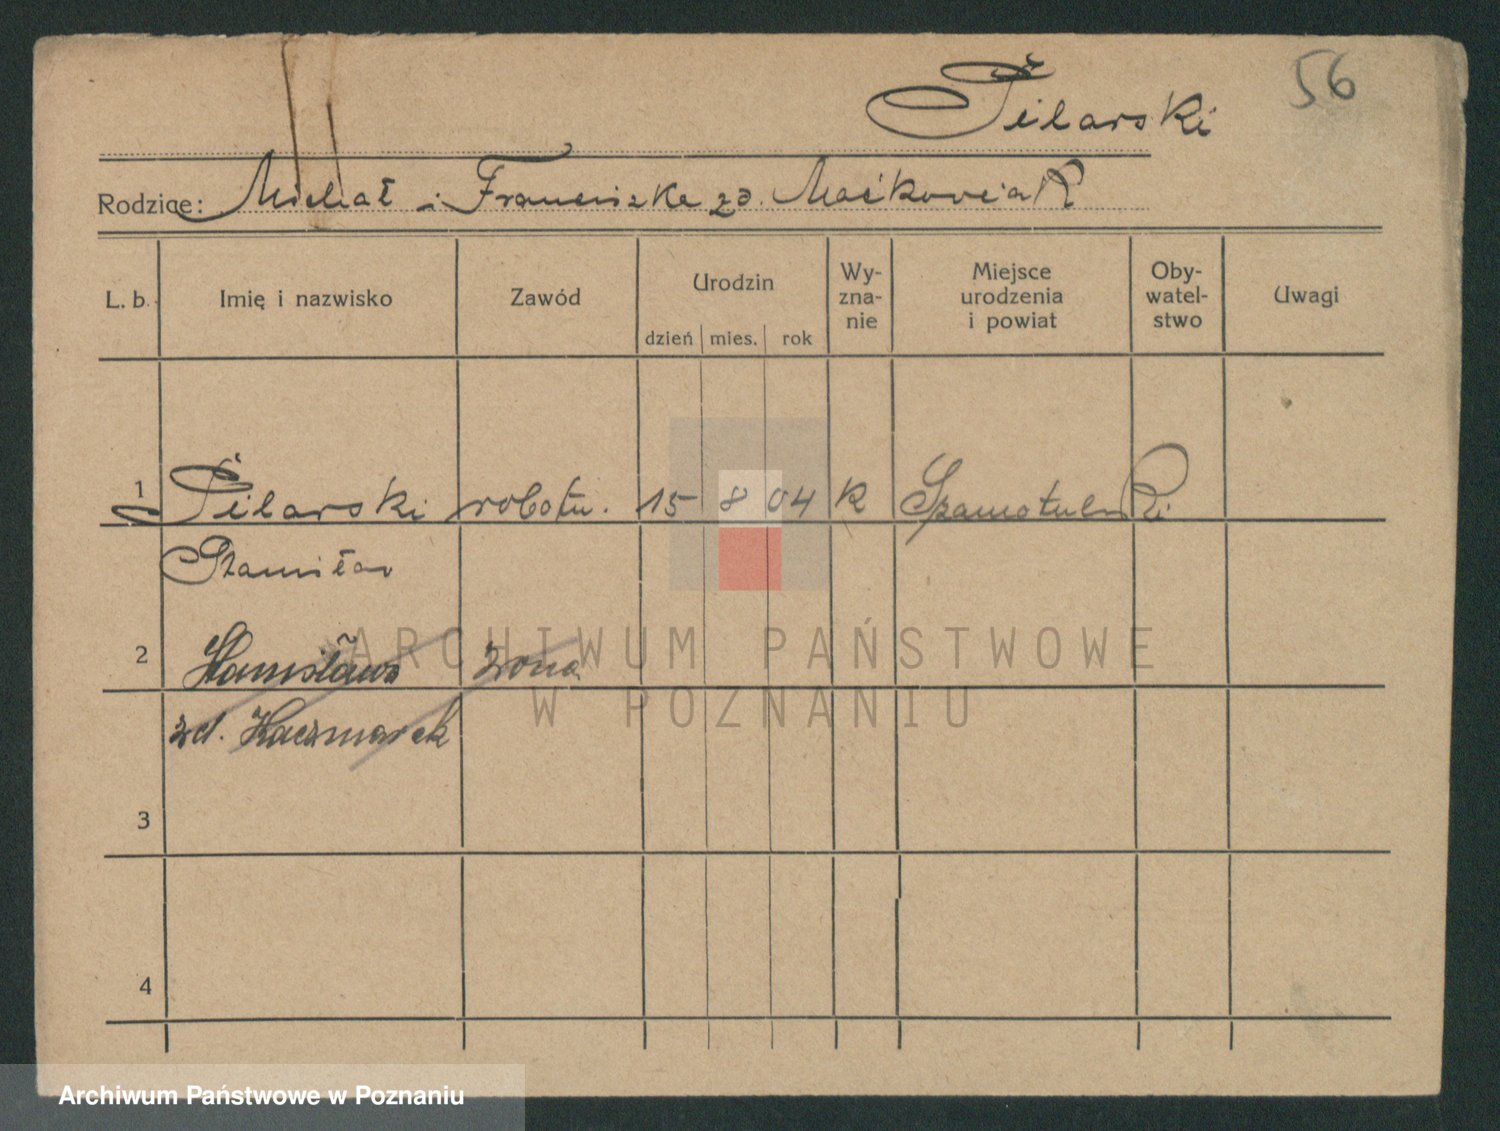 56
Pilarski
Rodzice: Michał i Franciszka zd. Maćkowiak
L. b. Imię i nazwisko Zawód Urodzin dzień mies. rok Wy-zna-nie Miejsce urodzenia i powiat Oby-watel-stwo Uwagi
1 Pilarski robotn. 15 8 04 k Szamotulski
Stanisław
2 Stanisława żona
zd. Kaczmarek
3
4
ARCHIWUM PAŃSTWOWE
W POZNANIU
Archiwum Państwowe w Poznaniu